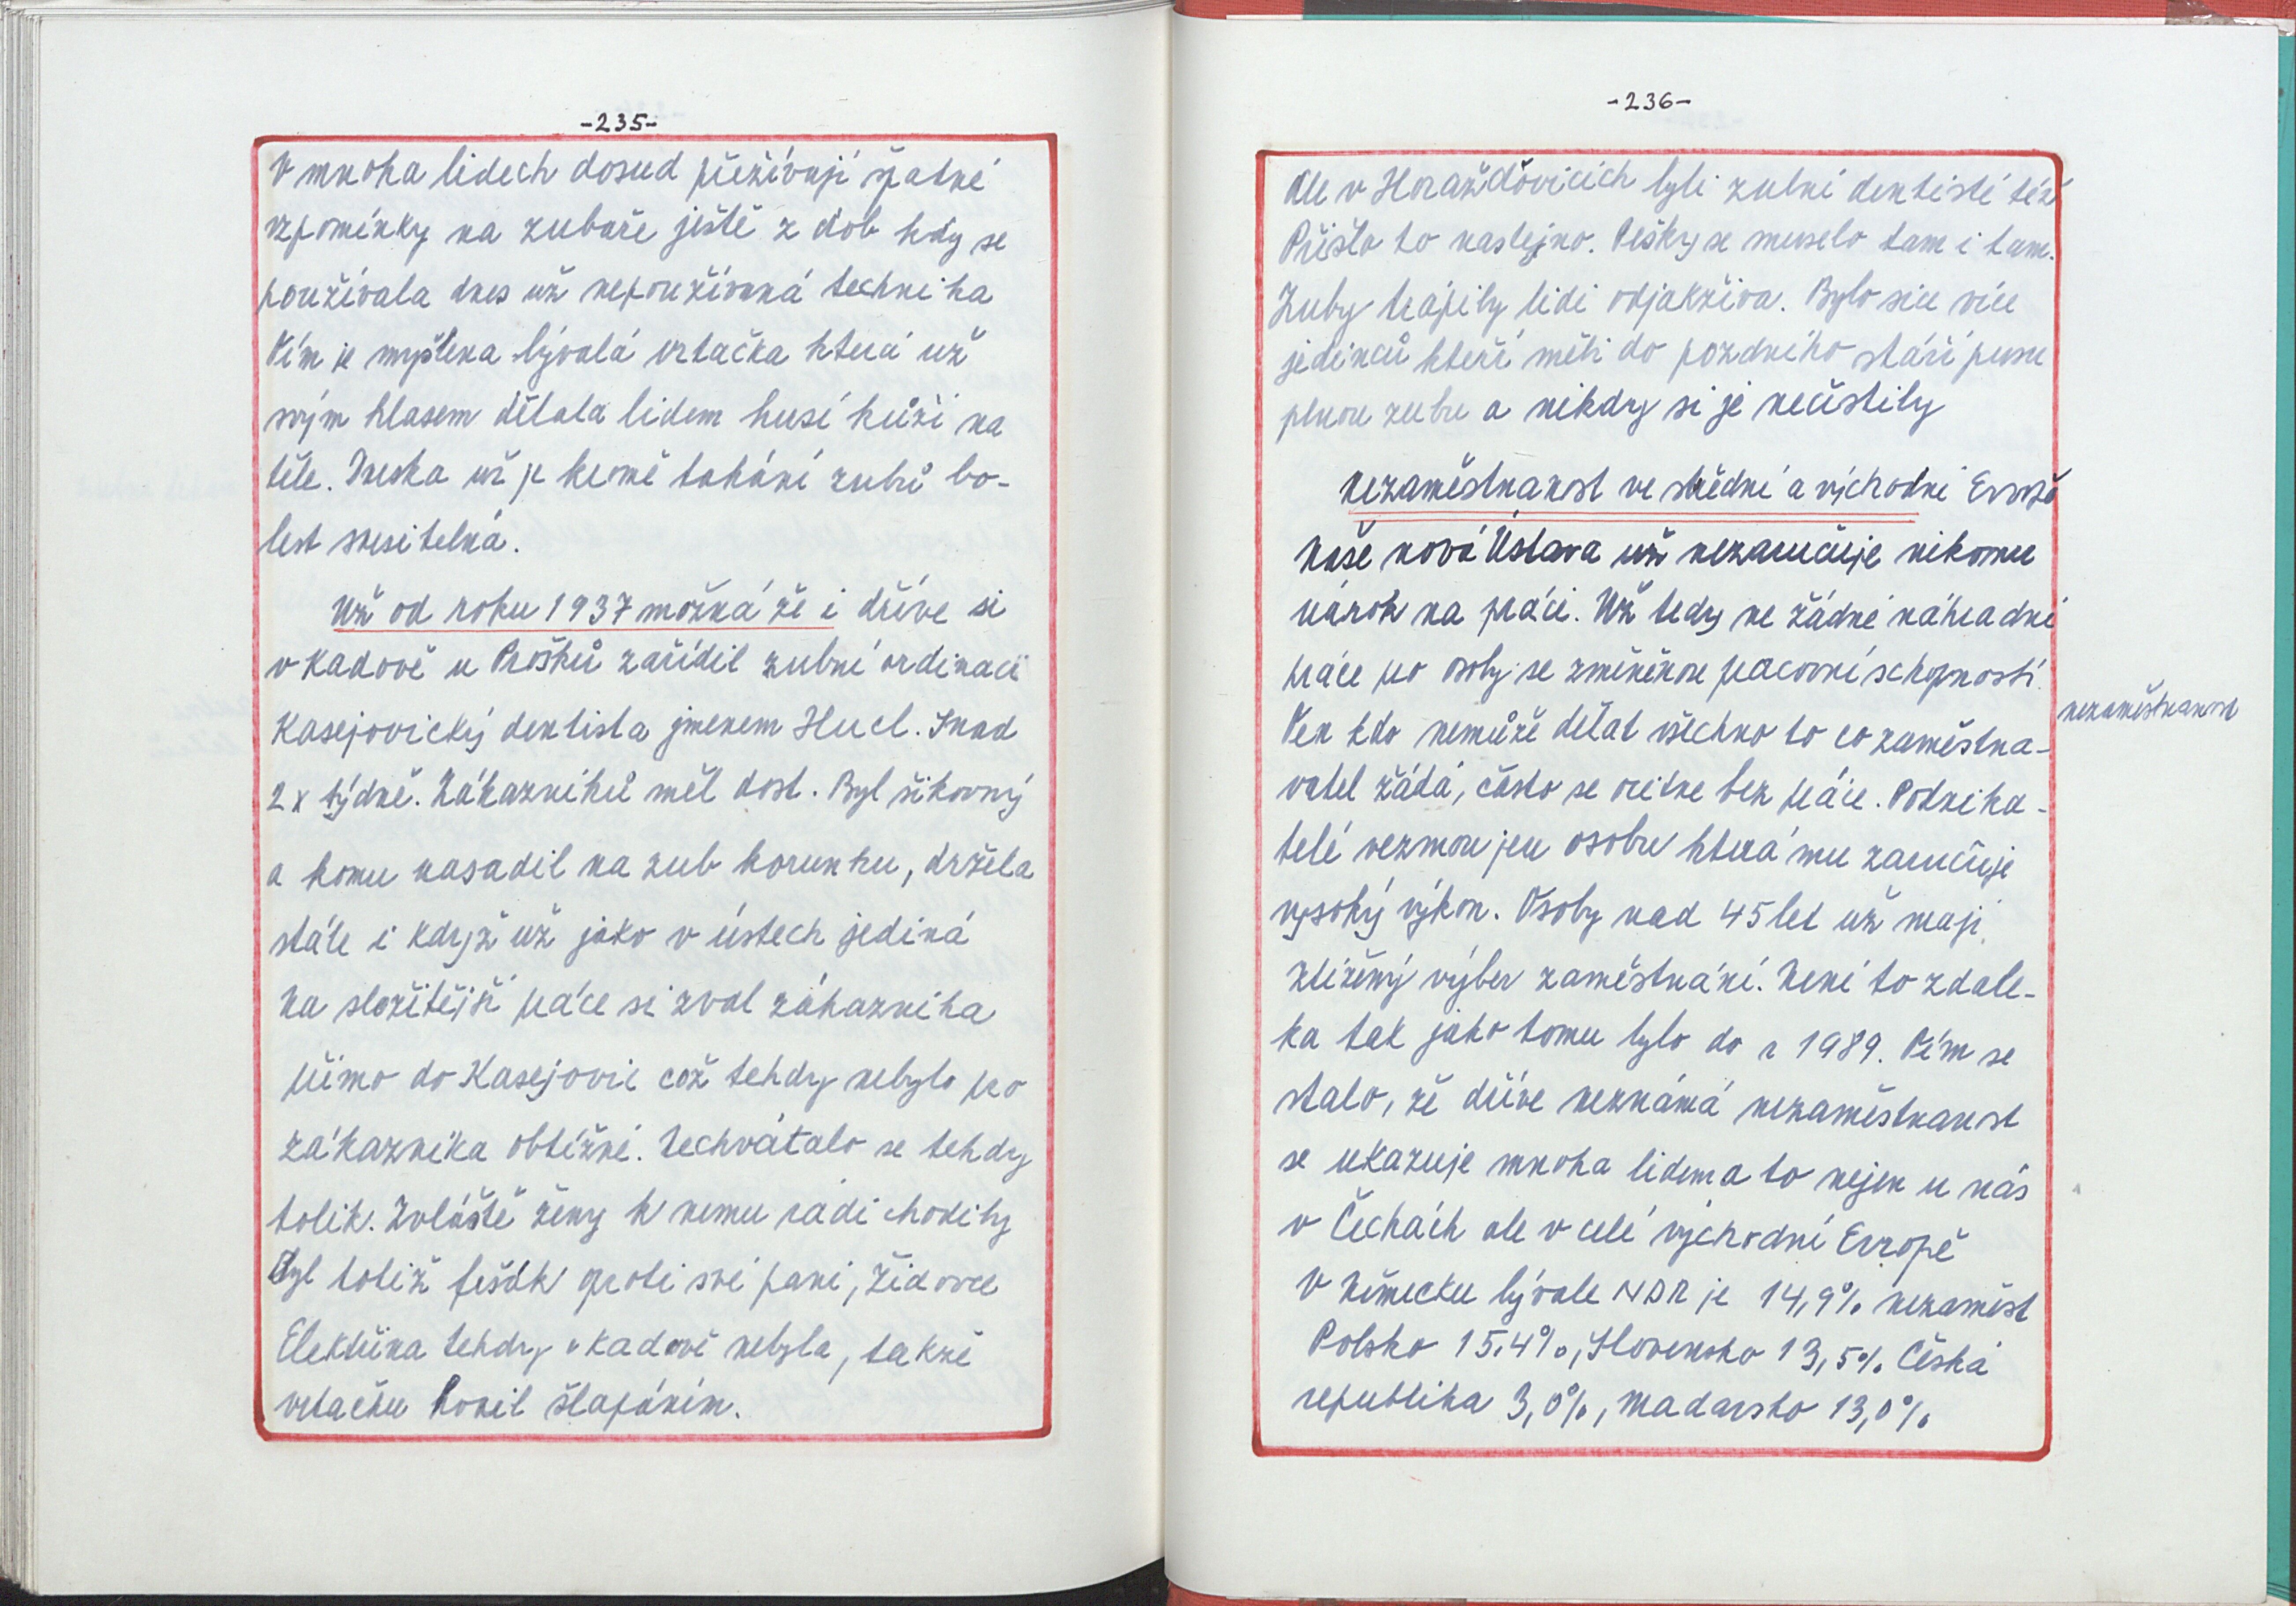 -235-
V mnoha lidech dosud přežívají špatné
vzpomínky na zubaře ještě z dob kdy se
používala dnes už nepoužívaná technika
Tím je myšlena bývalá vrtačka která už
svým hlasem dělala lidem husí kůži na
těle. Dneska už je kromě tahání zubů bo-
lest snesitelná.
Už od roku 1937 možná že i dříve si
v Kadově u Prošků zařídil zubní ordinaci
Kasejovický dentista jmenem Hucl. Snad
2x týdně. Zákazníků měl dost. Byl šikovný
a komu nasadil na zub korunku, držela
stále i když už jako v ústech jediná
Na složitější práce si zval zákazníka
přímo do Kasejovic což tehdy nebylo pro
zákazníka obtížné. Nechvátalo se tehdy
tolik. Zvláště ženy k nemu rádi chodily
Byl totiž fešák proti své paní, židovce
Elektřina tehdy v Kadově nebyla, takže
vrtačku honil šlapáním.
-236-
Ale v Horažďovicích byli zubní dentisté též
Přišlo to nastejno. Pěšky se muselo tam i tam.
Zuby trápily lidi odjakživa. Bylo sice více
jedinců kteří měli do pozdního stáří pusu
plnou zubu a nikdy si je nečistily
Nezaměstnanost ve střední a východní Evropě
Naše nová Ústava už nezaručuje nikomu
nárok na práci. Už tedy ne žádné náhradní
práce pro osoby se změněnou pracovní schopností.
nezaměstnanost
Ten kdo nemůže dělat všechno to co zaměstna-
vatel žádá, často se ocitne bez práce. Podnika-
telé vezmou jen osobu která mu zaručuje
vysoký výkon. Osoby nad 45 let už mají
ztížený výber zaměstnání. Není to zdale-
ka tak jako tomu bylo do r 1989. Tím se
stalo, že dříve neznámá nezaměstnanost
se ukazuje mnoha lidem a to nejen u nás
v Čechách ale v celé východní Evropě
V Německu bývale NDR je 14,9% nezaměst
Polsko 15,4%, Slovensko 13,5% Česká
republika 3,0%, Madarsko 13,0%